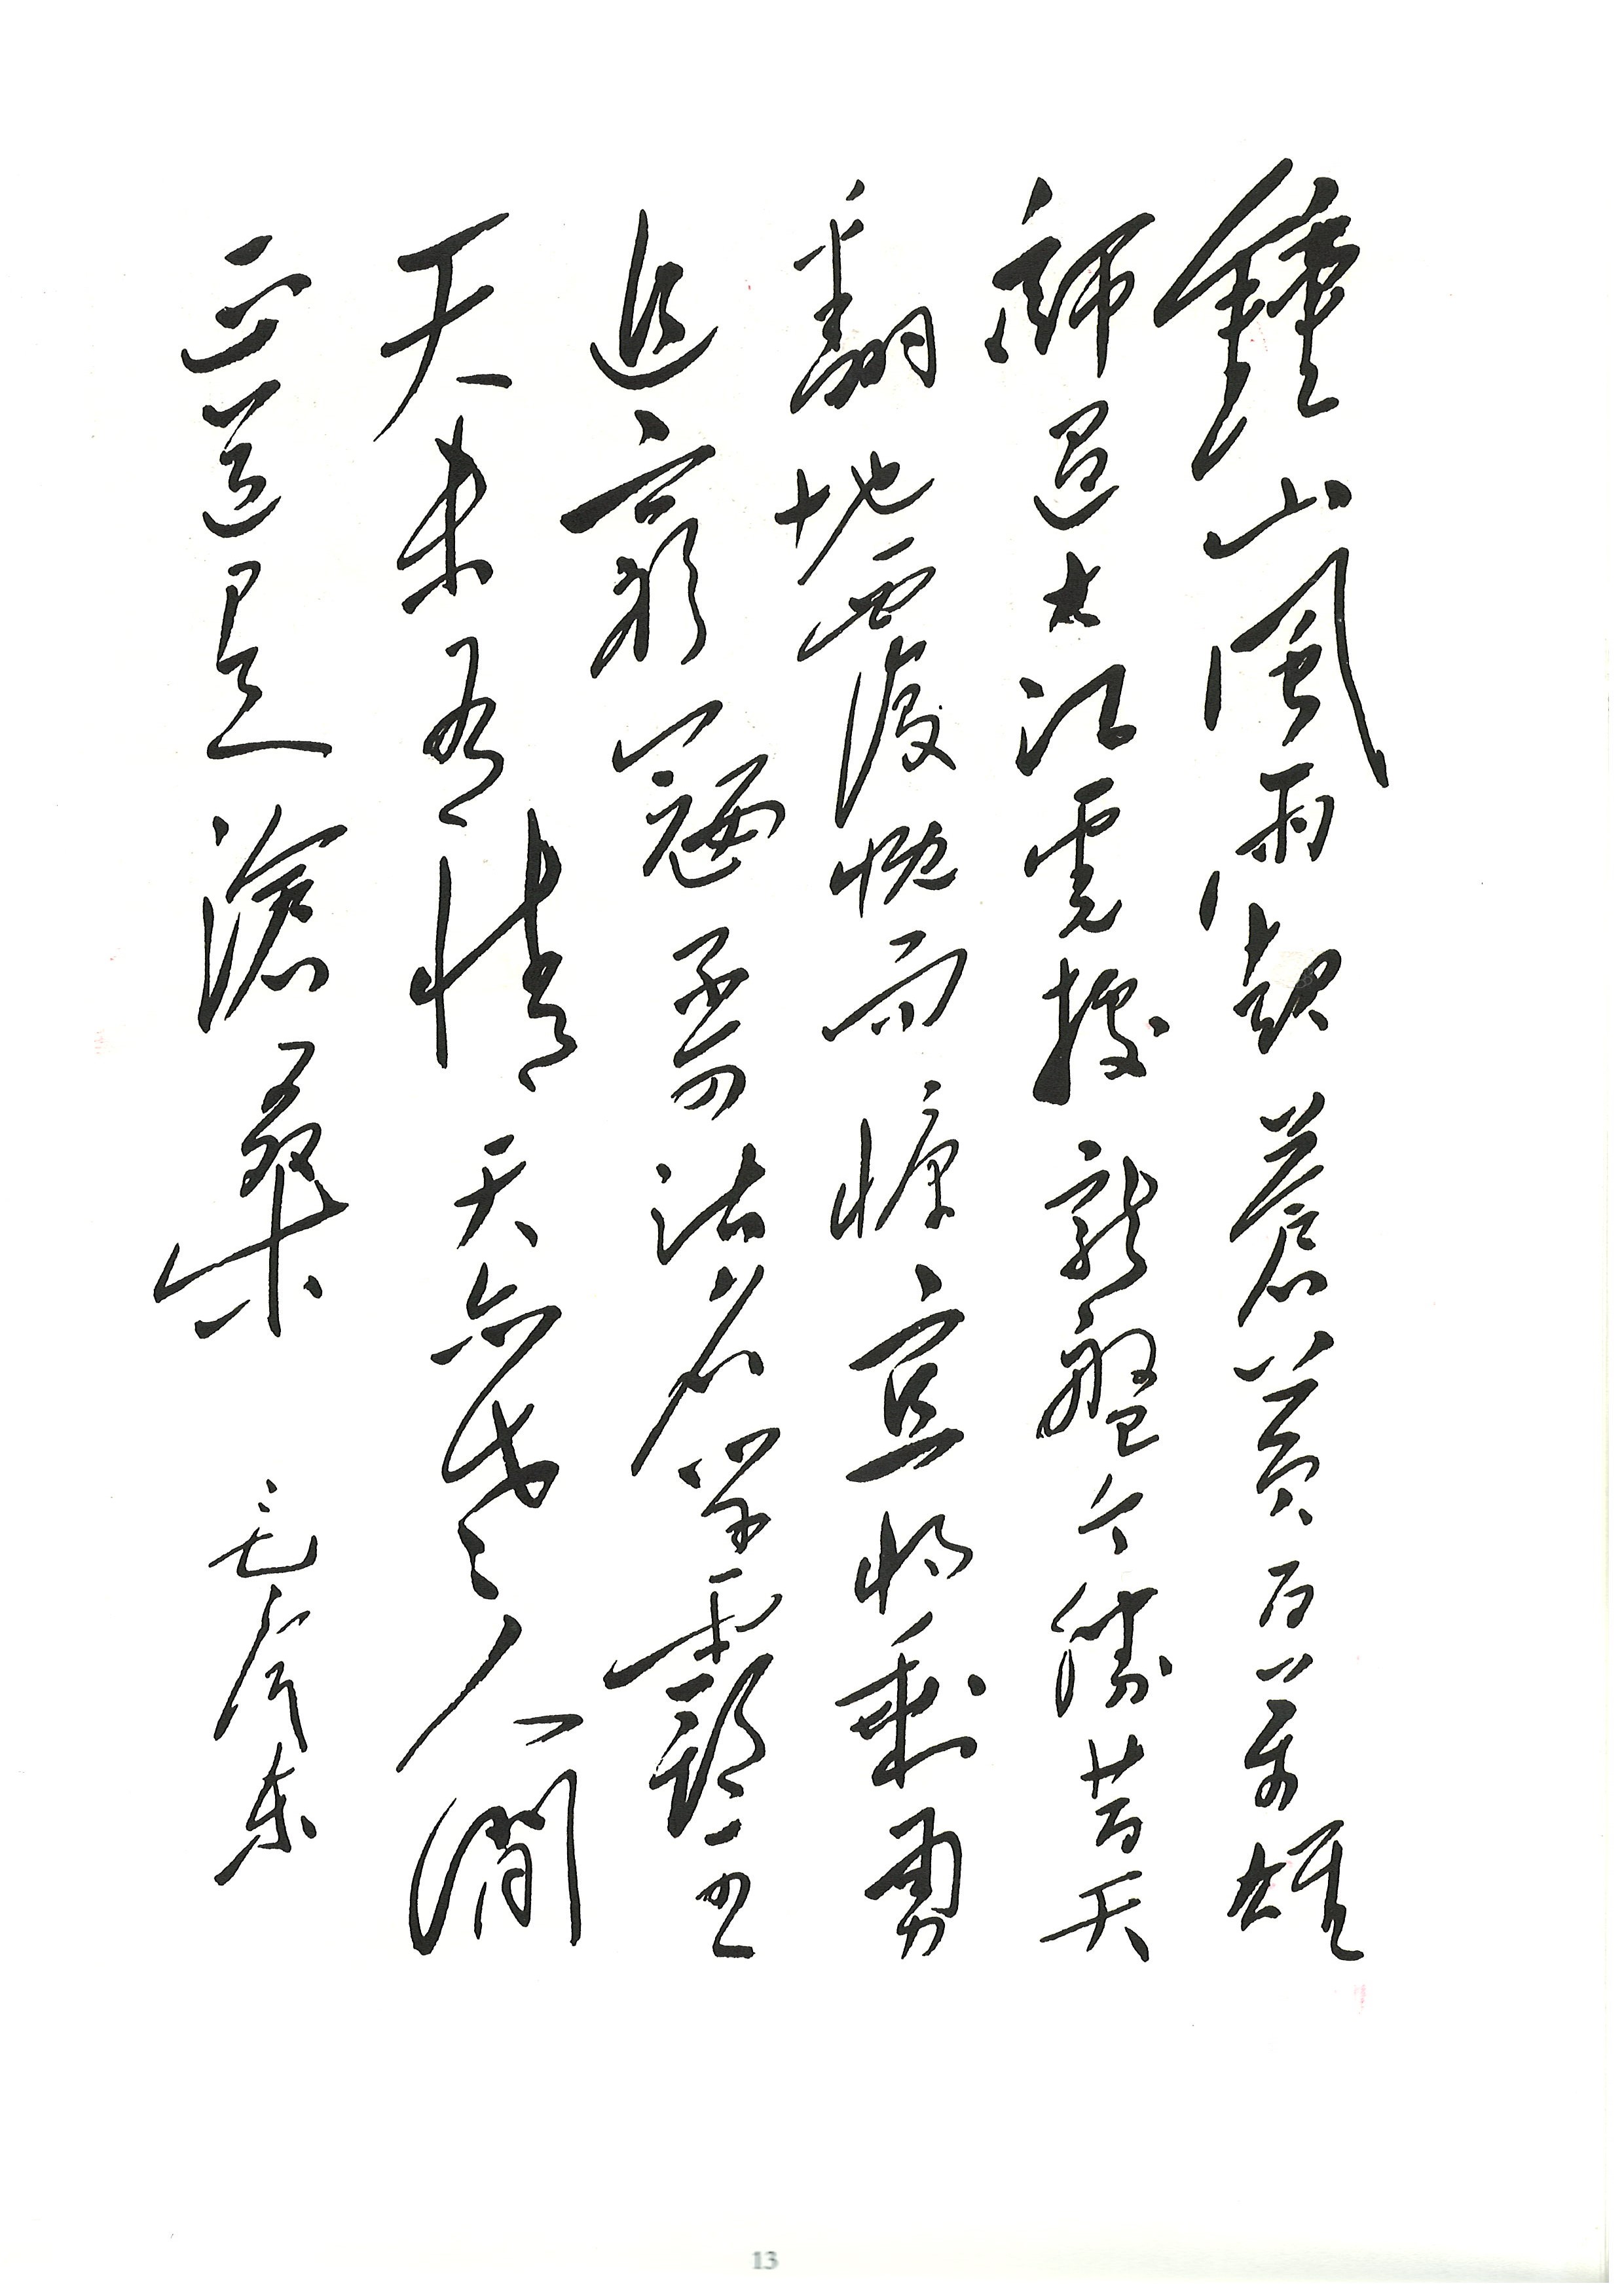 鍾山風雨起蒼黄百萬雄
師過大江虎據龍盤今勝昔天
翻地覆慨而慷宜將剩勇
追窮寇不可沽名學霸王
天若有情天亦老人間
正道是滄桑 毛澤東
13